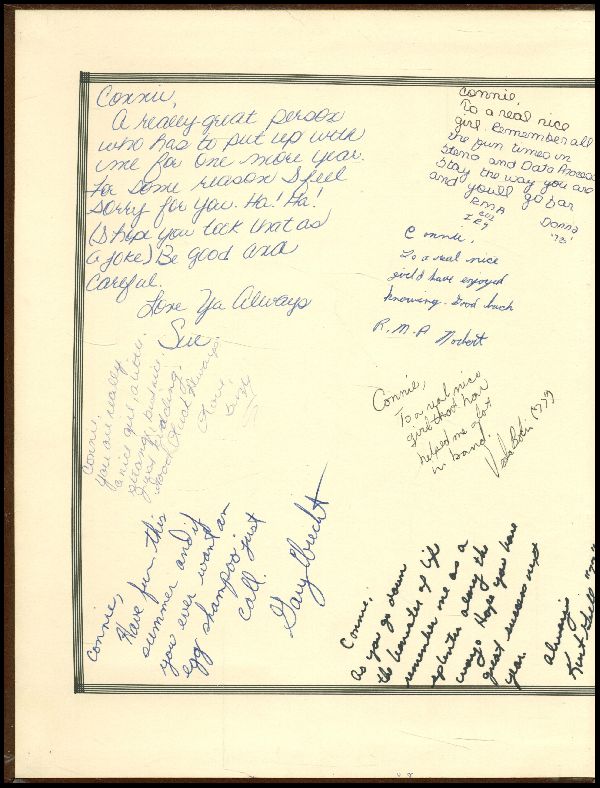 Connie,
A really great person
who has to put up with
me for one more year.
For some reason I feel
sorry for you. Ha! Ha!
(I hope you took that as
a joke) Be good and
careful.
Love Ya Always
Sue
Connie,
To a real nice
girl. Remember all
the fun times in
Steno and Data Process
Stay the way you are
and you'll go far
RMA
Donna
'75'
Connie,
To a real nice
girl I have enjoyed
knowing. Good luck
R.M.A Norbert
Connie,
you are really
a nice girl, a little
strange, but nice.
Good Luck Always.
Connie,
To a real nice
girl that has
helped me a lot
in band.
Connie,
Have fun this
summer and if
you ever want an
egg shampoo just
call.
Gary
Connie,
As you go down
the banister of life
remember me as a
splinter along the
way. Hope you have
great success next
year.
Always
Kurt